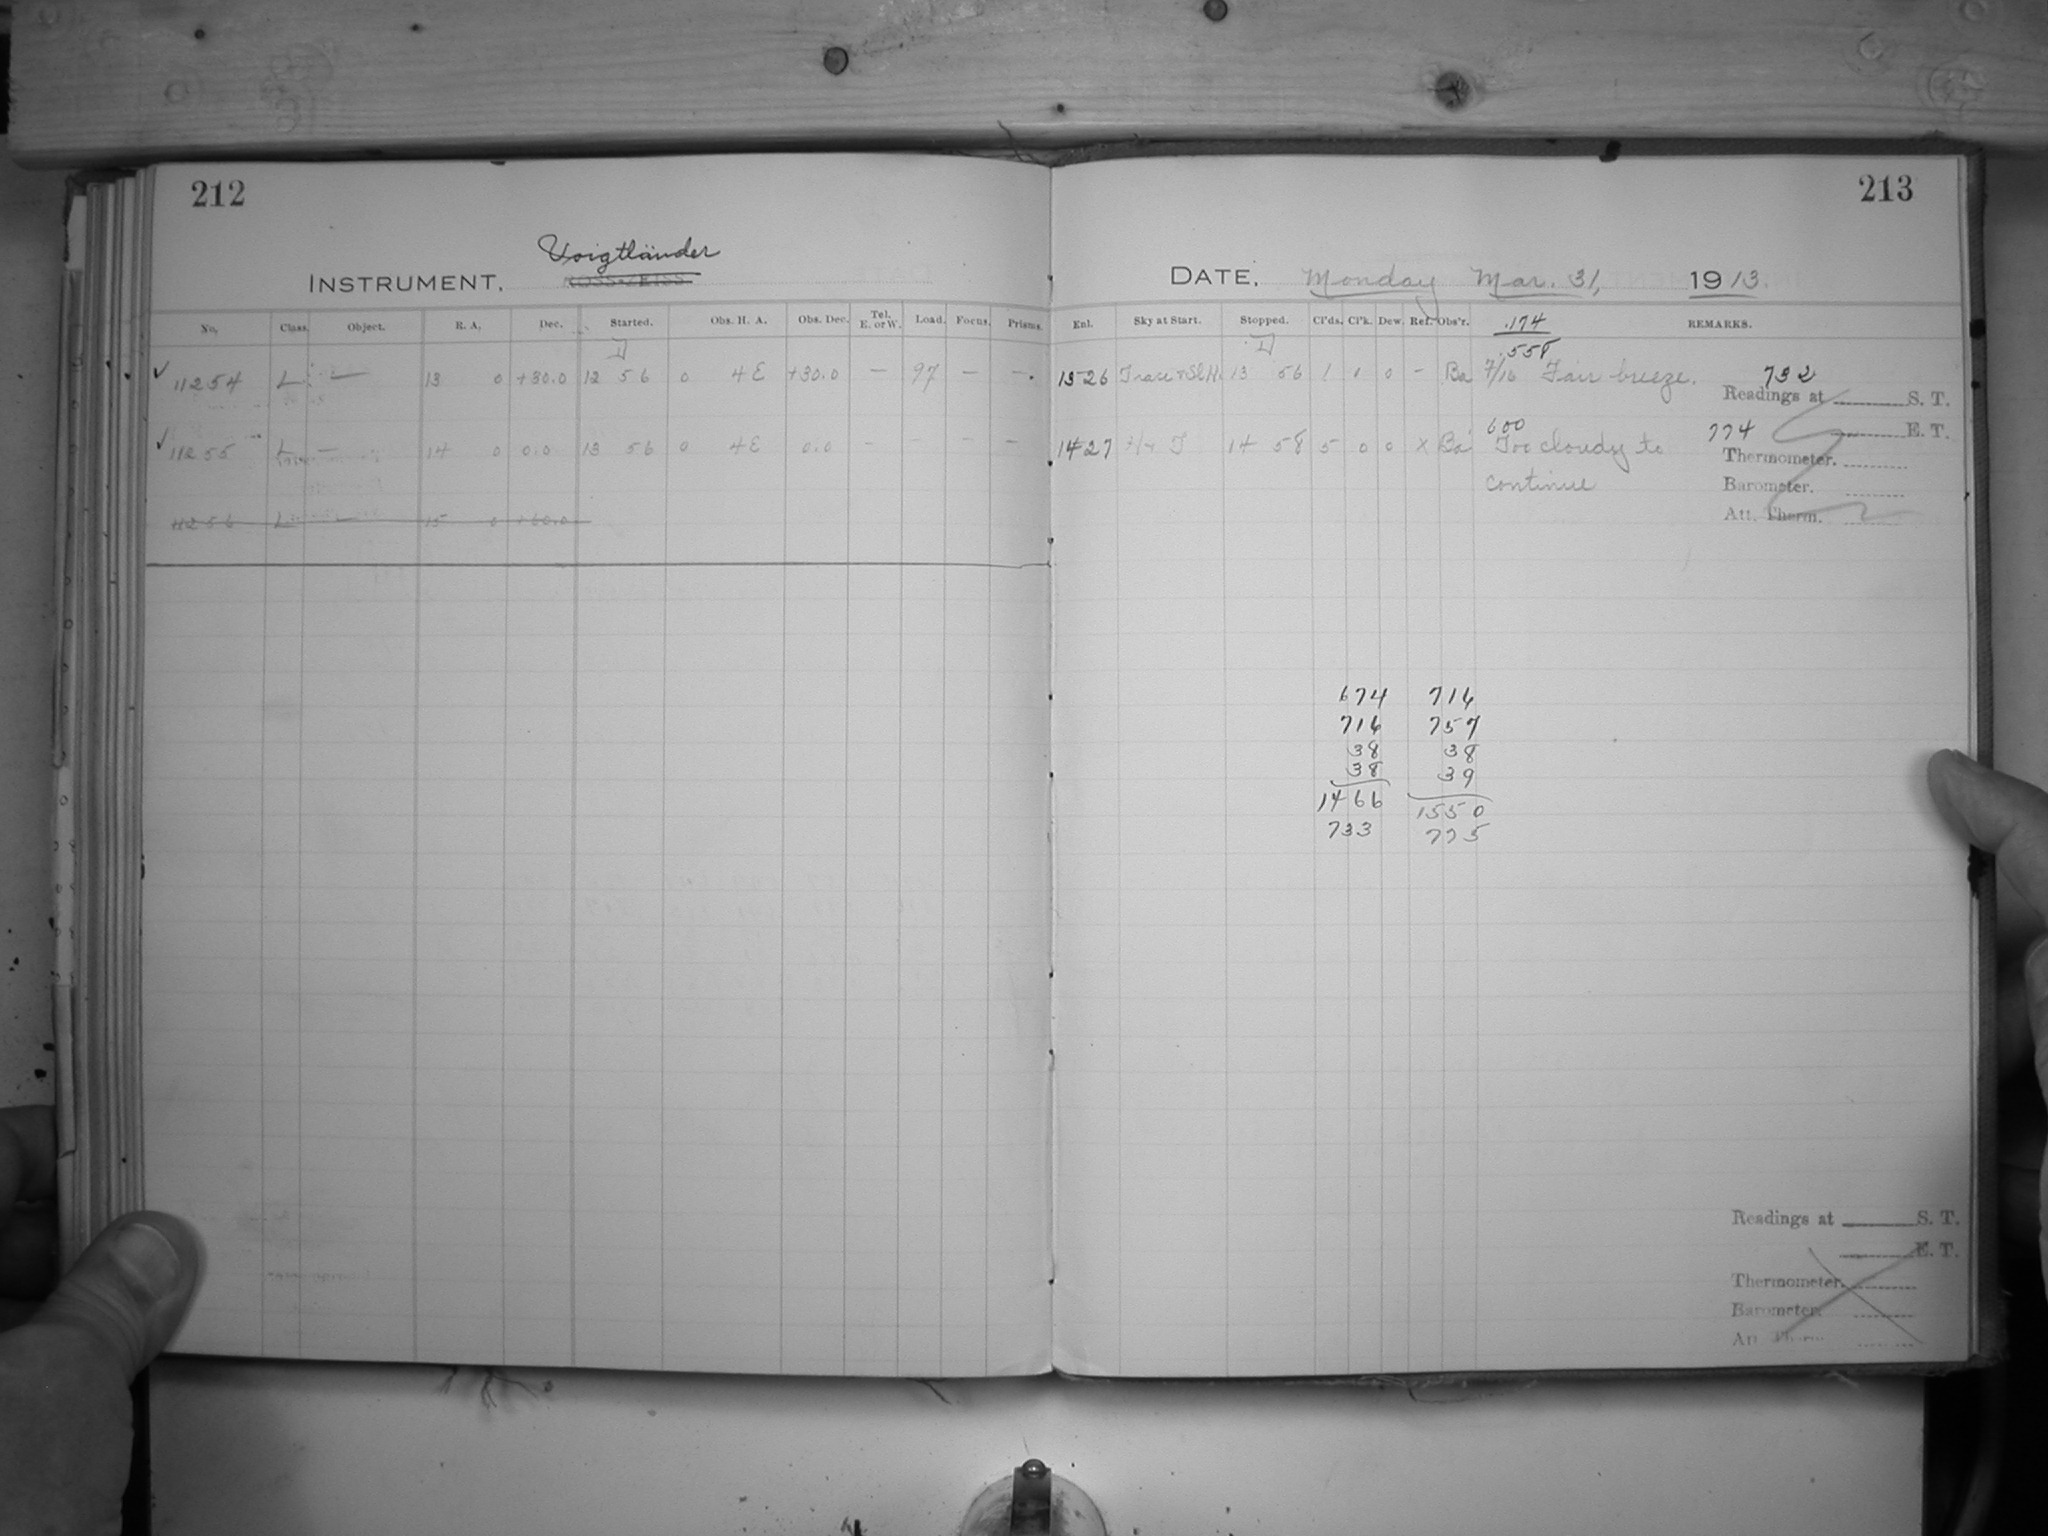 212
213
Voigtländer
INSTRUMENT. ROSS-ZEISS
DATE. Monday Mar. 31, 1913.
No. Class. Object. R. A. Dec. Started. Obs. H. A. Obs. Dec. Tel. E. or W. Load. Focus. Prisms. Enl. Sky at Start. Stopped. Cl'ds. Cl'k. Dew. Ref. Obs'r. .174 REMARKS.
.558
✓ 11254 L — 13 0 +30.0 12 56 0 4E +30.0 — 97 — — 13 26 Trace + Sl H. 13 56 1 1 0 - Ba 7/16 Fair breeze. 732
Readings at S. T.
600 774 E. T.
✓ 11255 L — 14 0 0.0 13 56 0 4E 0.0 - - - - 14 27 14 58 5 0 0 x Ba Too cloudy to
Thermometer.
continue
Barometer.
11256 L — 15 0 +60.0
Att. Therm.
674 716
716 757
38 38
38 39
1466 1550
733 775
Readings at S. T.
E. T.
Thermometer.
Barometer.
Att. Therm.